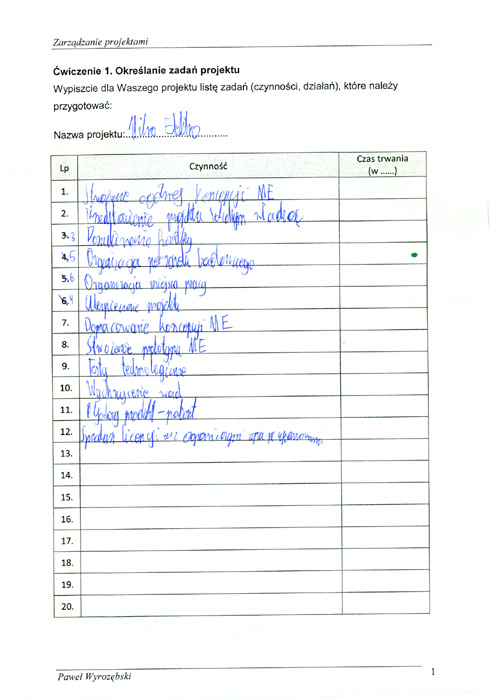 Zarządzanie projektami
Ćwiczenie 1. Określanie zadań projektu
Wypiszcie dla Waszego projektu listę zadań (czynności, działań), które należy
przygotować:
Nazwa projektu: Elektro
Lp Czynność Czas trwania
(w ......)
1. Stworzenie ogólnej koncepcji ME
2. Przedstawienie projektu władzą
3. 3
4. 5 Organizacja badawczego
5. 6 Organizacja miejsca pracy
6. 4 projektu
7. Dopracowanie koncepcji ME
8. Stworzenie prototypu ME
9. Testy technologiczne
10. Wychwycenie wad
11. Gotowy produkt - patent
12. Sprzedaż licencji
13.
14.
15.
16.
17.
18.
19.
20.
Paweł Wyrozębski 1